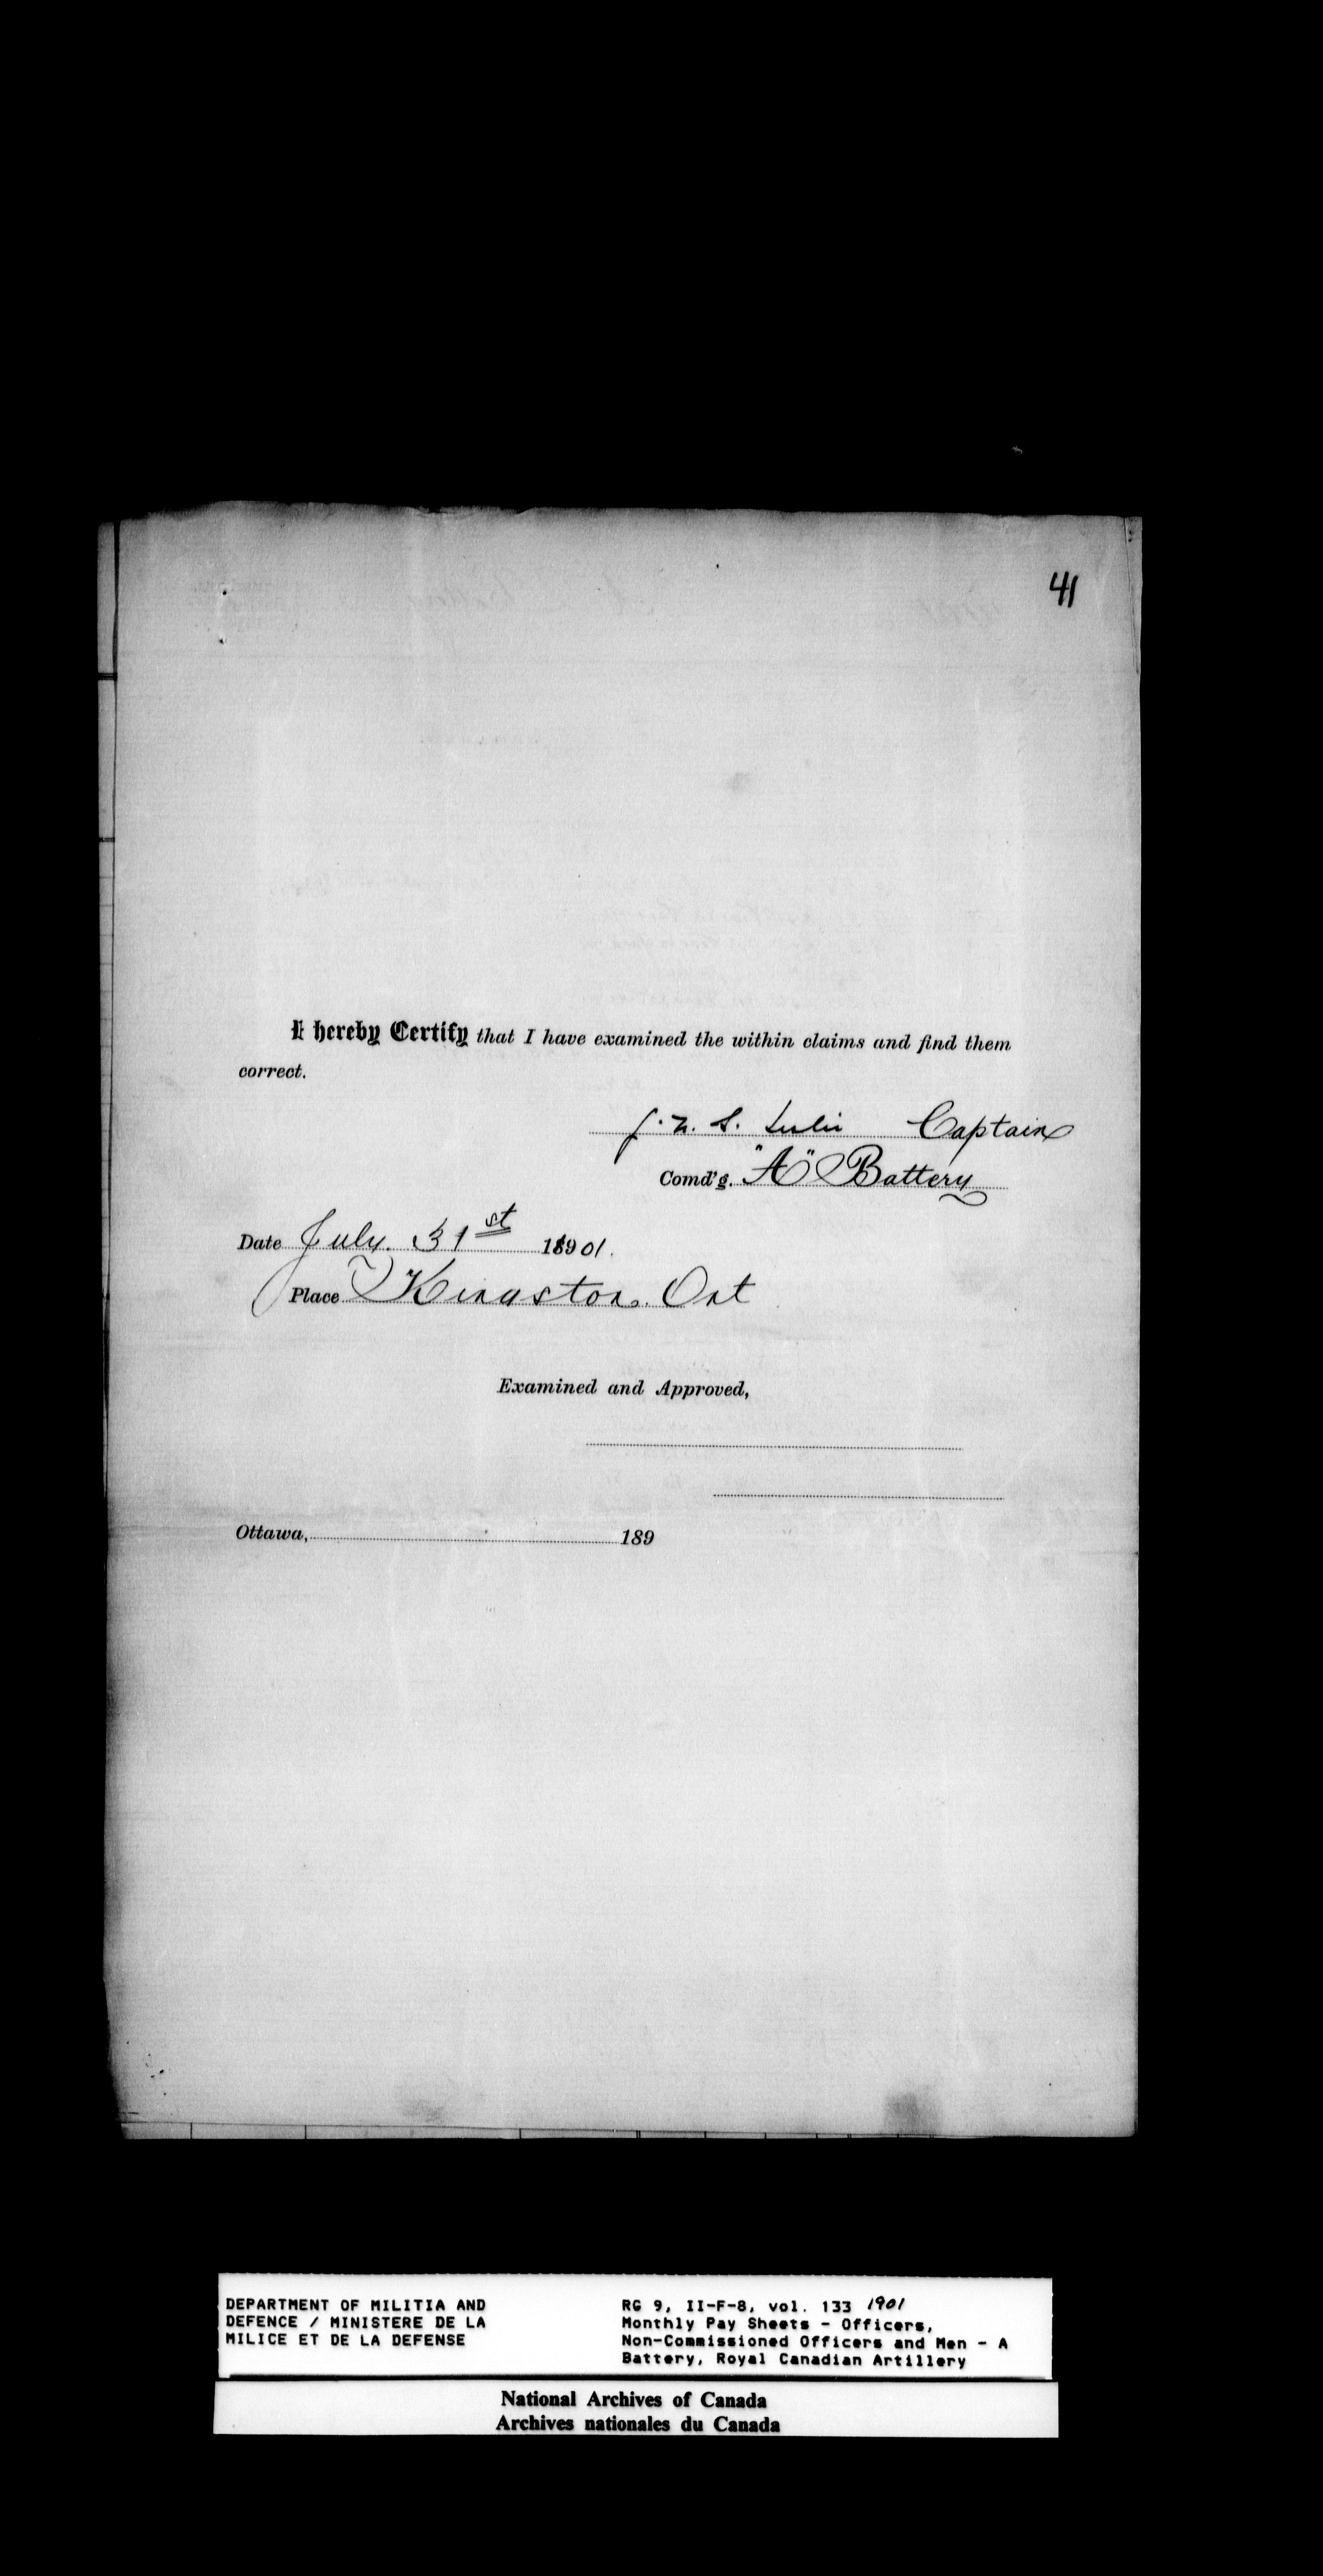 41
I hereby Certify that I have examined the within claims and find them
correct.
J. N. S. Leslie Captain
Comd'g. "A" Battery
Date July. 31st 18901.
Place Kingston. Ont
Examined and Approved,
Ottawa, 189
DEPARTMENT OF MILITIA AND
DEFENCE / MINISTERE DE LA
MILICE ET DE LA DEFENSE
RG 9, II-F-8, vol. 133 1901
Monthly Pay Sheets - Officers,
Non-Commissioned Officers and Men - A
Battery, Royal Canadian Artillery
National Archives of Canada
Archives nationales du Canada